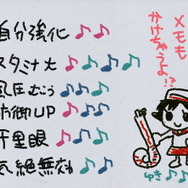 自分強化 ♪♪
スタミナ大 ♪♪♪♪
風圧むこう ♪♪
防御UP ♪♪♪
千里眼 ♪♪♪
気絶無効 ♪♪♪
メモも
かけちゃうよ!?
ゆき♪♪